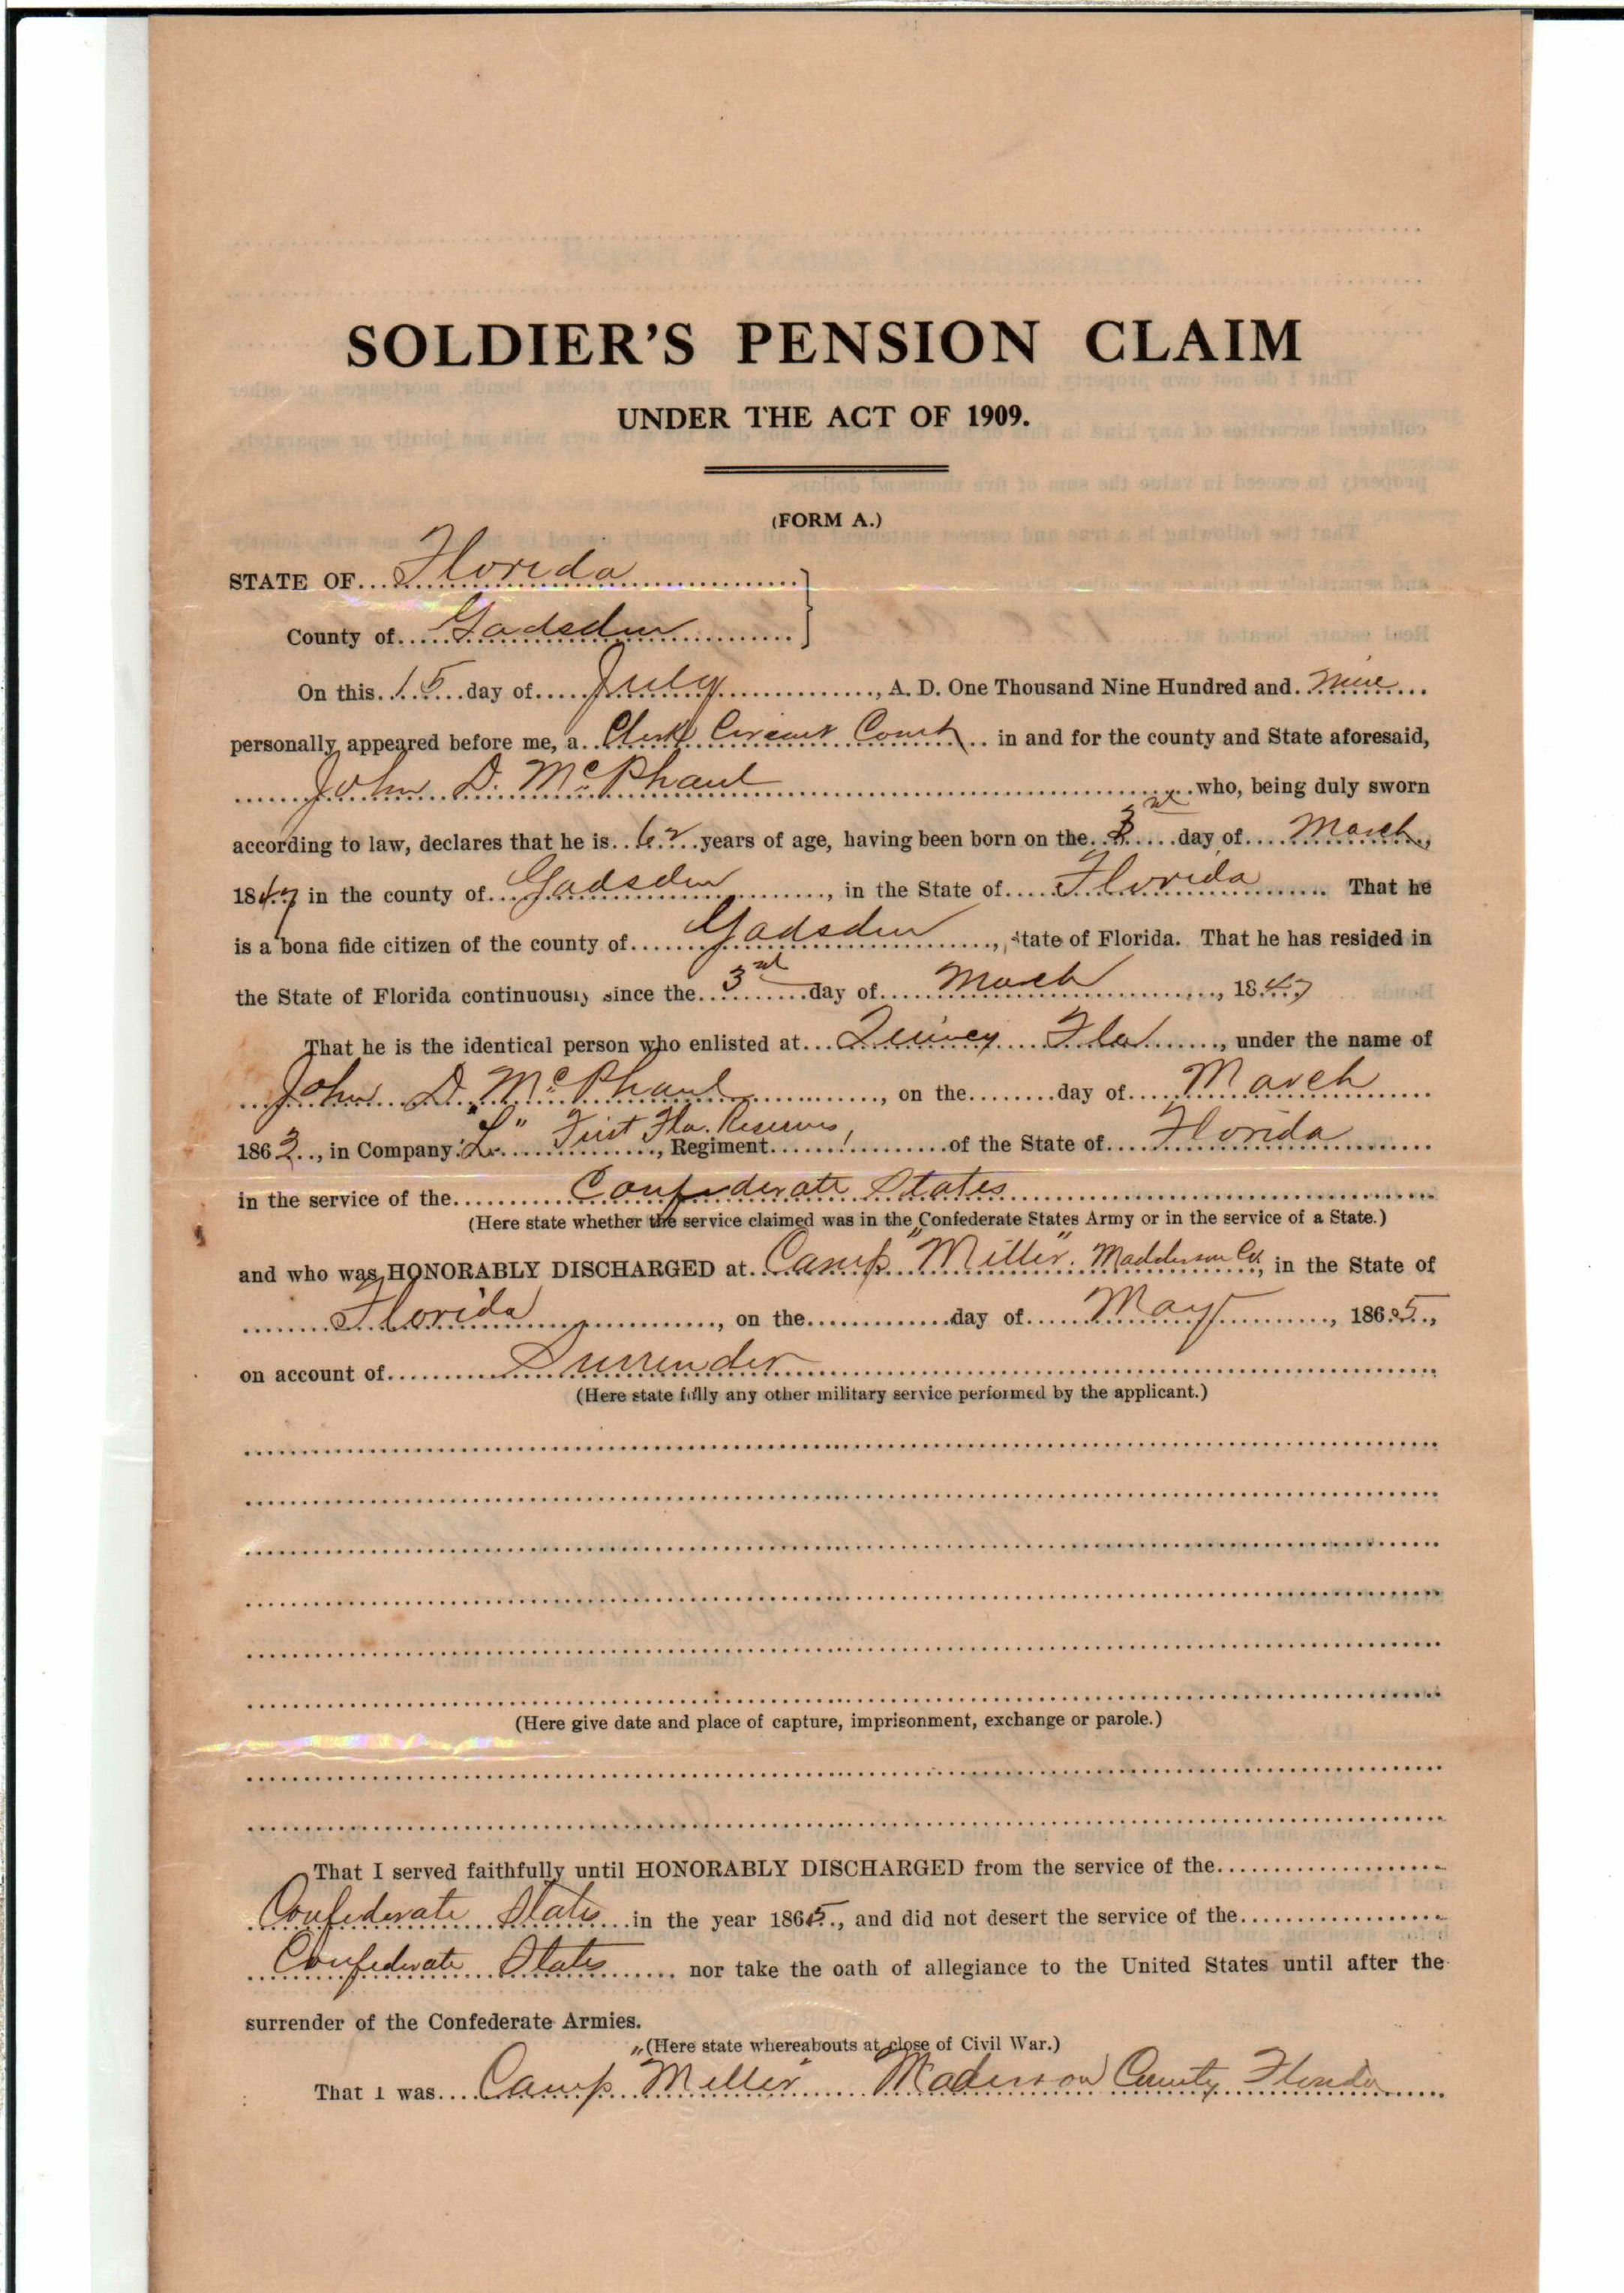 SOLDIER'S PENSION CLAIM
UNDER THE ACT OF 1909.
(FORM A.)
STATE OF Florida
County of Gadsden
On this 15 day of July, A. D. One Thousand Nine Hundred and nine
personally appeared before me, a Clerk Circuit Court in and for the county and State aforesaid,
John D. McPhaul who, being duly sworn
according to law, declares that he is 62 years of age, having been born on the 3rd day of March,
1847 in the county of Gadsden, in the State of Florida. That he
is a bona fide citizen of the county of Gadsden, State of Florida. That he has resided in
the State of Florida continuously since the 3rd day of March, 1847
That he is the identical person who enlisted at Quincy Fla, under the name of
John D. McPhaul, on the day of March
186, in Company "L" First Fla. Reserves, Regiment of the State of Florida
in the service of the Confederate States
(Here state whether the service claimed was in the Confederate States Army or in the service of a State.)
and who was HONORABLY DISCHARGED at Camp "Miller" Madderson Co., in the State of
Florida, on the day of May, 1865.,
on account of Surrender
(Here state fully any other military service performed by the applicant.)
(Here give date and place of capture, imprisonment, exchange or parole.)
That I served faithfully until HONORABLY DISCHARGED from the service of the
Confederate States in the year 1865., and did not desert the service of the
Confederate States nor take the oath of allegiance to the United States until after the
surrender of the Confederate Armies.
(Here state whereabouts at close of Civil War.)
That I was Camp "Miller" Madisson County Florida